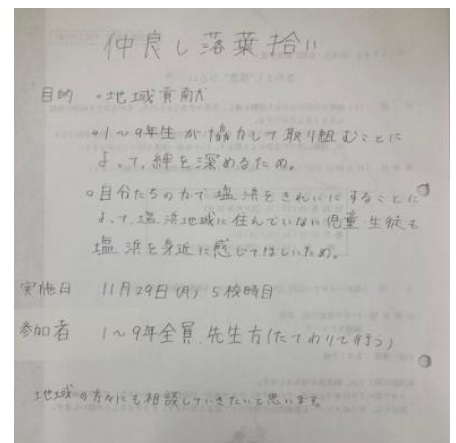 仲良し落葉拾い
目的 ・地域貢献
○1〜9年生が協力して取り組むことに
よって、絆を深めるため。
○自分たちの力で塩浜をきれいにすることに
よって、塩浜地域に住んでいない児童・生徒も
塩浜を身近に感じてほしいため。
実施日 11月29日(月) 5校時目
参加者 1〜9年全員、先生方(たてわりで行う)
地域の方々にも相談していきたいと思います。